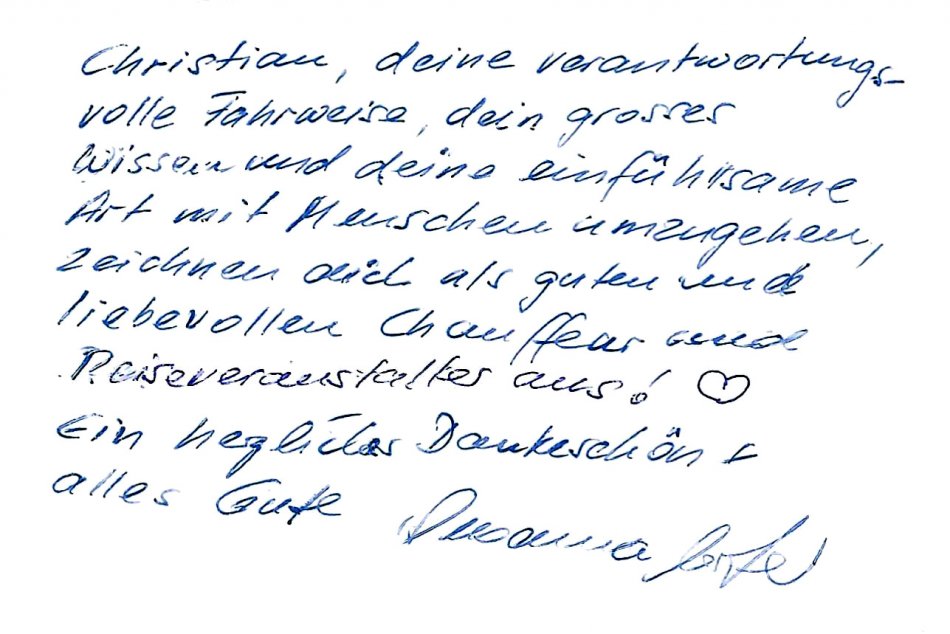 Christian, deine verantwortungs-
volle Fahrweise, dein grosses
Wissen und deine einfühlsame
Art mit Menschen umzugehen,
zeichnen dich als guten und
liebevollen Chauffeur und
Reiseveranstalter aus! ♡
Ein herzliches Dankeschön +
alles Gute